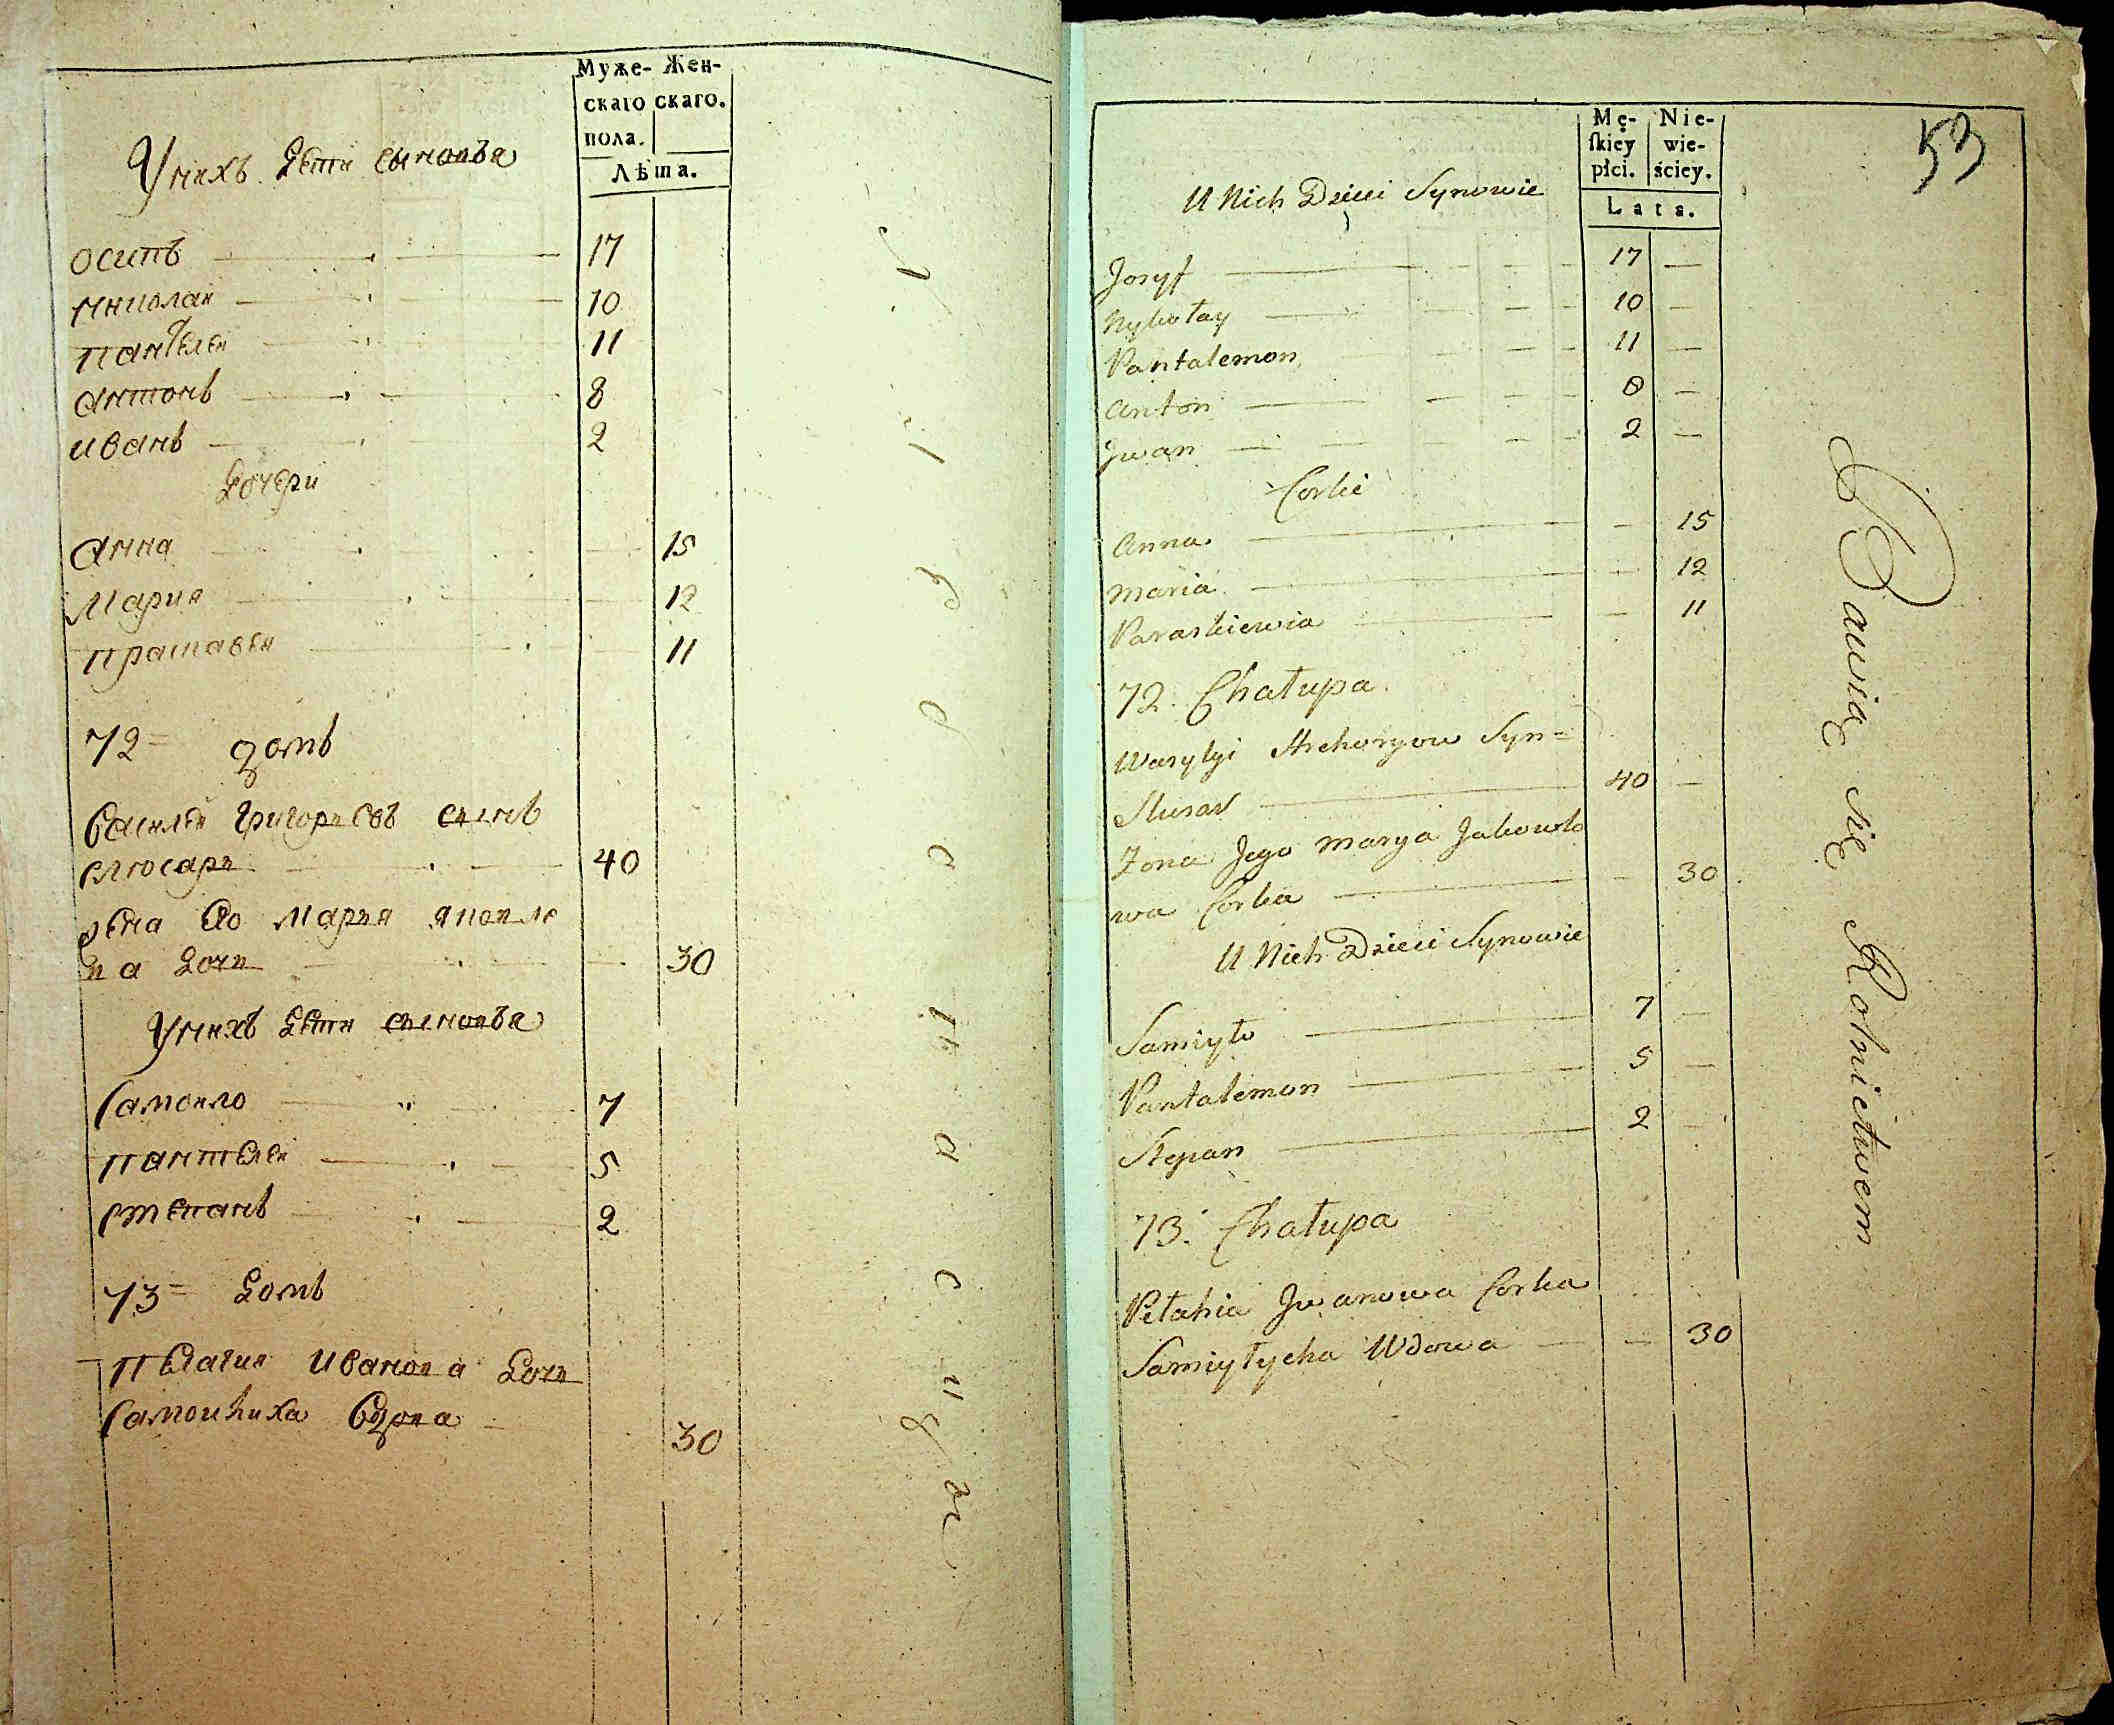 Муже- Жен-
скаго скаго.
пола.
Лѣта.
У нихъ дети сыновья
Осипъ 17
Николай 10
Пантелей 11
Антонъ 8
Иванъ 2
Дочери
Анна 15
Мария 12
Прасковея 11
72 = домъ
Василей Григорьевъ сынъ
Слюсарь 40
жена Его Марья Яковле
ва дочь 30
У нихъ дети сыновья
Самойло 7
Пантелей 5
Степанъ 2
73 = домъ
Пелагия Иванова дочь
Самойлиха Вдова 30
53
Mę- Nie-
skiey wie-
płci. ściey.
Lata.
U Nich Dzieci Synowie
Josyf 17 —
Nykołay 10 —
Pantalemon 11 —
Anton 8 —
Jwan 2 —
Corki
Anna — 15
Maria — 12
Paraskiewia — 11
72. Chałupa
Wasylyi Hrehoryow Syn =
Slusar 40 —
Zona Jego Marya Jakowlo
wa Corka — 30
U Nich Dzieci Synowie
Samiyło 7 —
Pantalemon 5 —
Stepan 2 —
73. Chałupa
Pełahia Jwanowa Corka
Samiyłycha Wdowa — 30
Bawią się Rolnictwem